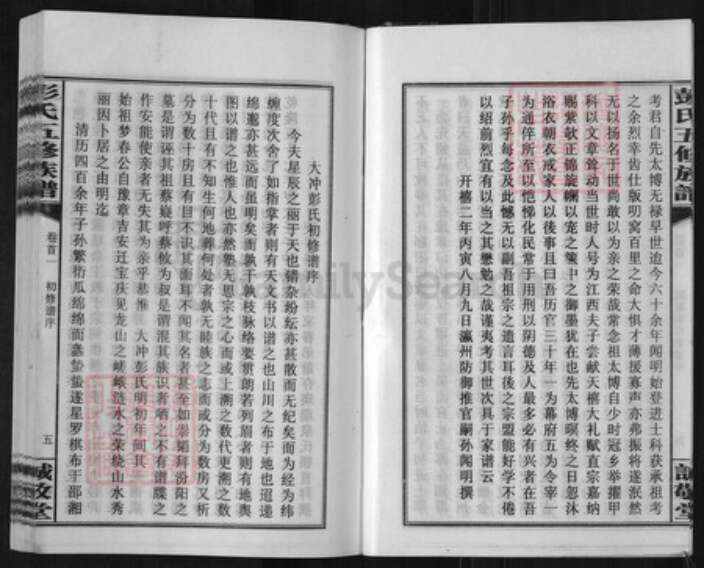 彭氏五修族譜
誠敬堂
考君自先太博无禄早世迨今六十余年闻明始登进士科获承祖考
之余烈幸齿仕版叨窝百里之命大惧才薄援寡声亦弗振将遂泯然
无以扬名于世尚敢以为亲之荣哉常念祖太博自少时冠乡举擢甲
科以文章耸动当世时人号为江西夫子尝献天禧大礼赋直宗嘉纳
赐紫欹正锦旋輀以宠之箧中之御墨犹在也先太博暝终之日忽沐
浴衣朝衣戒家人以後事且曰吾历官三十年一为幕府五为令宰一
为通倅所至以恺悌化民常于用刑以阴德及人最多必有兴者在吾
子孙乎每念及此憾无以副吾祖宗之遗言耳後之宗盟能好学不倦
以绍前烈宜有以当之其懋勉之哉谨夷考其世次具于家谱云
开禧二年丙寅八月九日瀛州防御推官嗣孙闻明撰
大冲彭氏初修谱序
今夫星辰之丽于天也错杂纷纭亦甚散而无纪矣而为经为纬
缠度次舍了如指掌者则有天文书以谱之也山川之布于地也迢递
绵邈亦甚远而虽明矣而孰干孰枝脉络娄贯朗若列眉者则有地舆
图以谱之也惟人也亦然塾无恩宗之心而或上溯之数代更溯之数
十代且有不知生何地葬何处者孰无睦族之志而或分为数房又析
分为数十房且有目不识其面耳不闻其名者甚至如崇韬拜汾阳之
墓是谓诬其祖蔡嶷呼蔡攸为叔是谓混其族识者哂之不有谱牒之
作安能使亲者无失其为亲乎恭惟 大冲彭氏明初年间其
始祖梦春公自豫章吉安迁宝庆见龙山之嵯峨涟水之荣绕山水秀
丽因卜居之由明迄
清历四百余年子孙繁衍瓜绵绵而螽蛰蛰遂星罗棋布于邵湘
彭氏五修族譜
卷首一 初修谱序
五
誠敬堂
FamilySearch